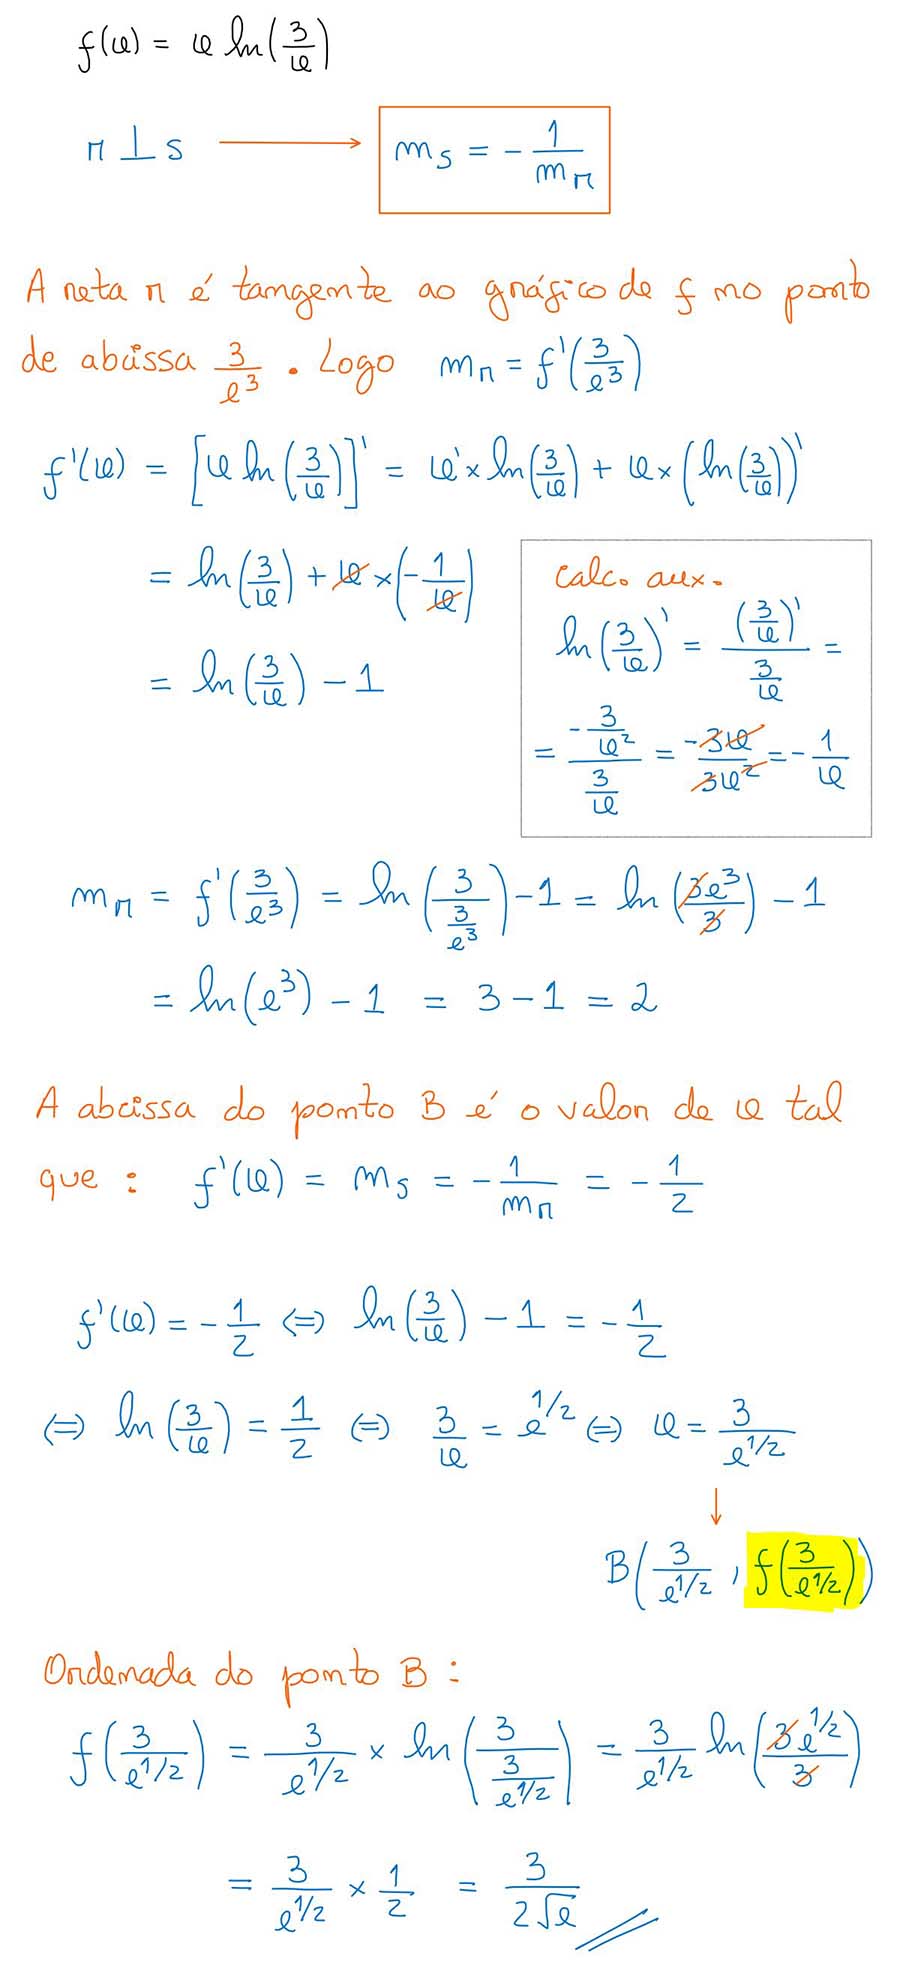 f(x) = x ln(3/x)
r ⊥ s ⟶ m_s = - 1/m_r
A reta r é tangente ao gráfico de f no ponto
de abcissa 3/e^3 . Logo m_r = f'(3/e^3)
f'(x) = [x ln(3/x)]' = x' × ln(3/x) + x × (ln(3/x))'
= ln(3/x) + x × (-1/x)
= ln(3/x) - 1
calc. aux.
ln(3/x)' = (3/x)' / (3/x) =
= (-3/x^2) / (3/x) = -3x/3x^2 = - 1/x
m_r = f'(3/e^3) = ln(3/(3/e^3)) - 1 = ln(3e^3/3) - 1
= ln(e^3) - 1 = 3 - 1 = 2
A abcissa do ponto B é o valor de x tal
que : f'(x) = m_s = - 1/m_r = - 1/2
f'(x) = - 1/2 ⇔ ln(3/x) - 1 = - 1/2
⇔ ln(3/x) = 1/2 ⇔ 3/x = e^1/2 ⇔ x = 3/e^1/2
↓
B(3/e^1/2 , f(3/e^1/2))
Ordenada do ponto B :
f(3/e^1/2) = 3/e^1/2 × ln(3/(3/e^1/2)) = 3/e^1/2 ln(3e^1/2/3)
= 3/e^1/2 × 1/2 = 3/2√e